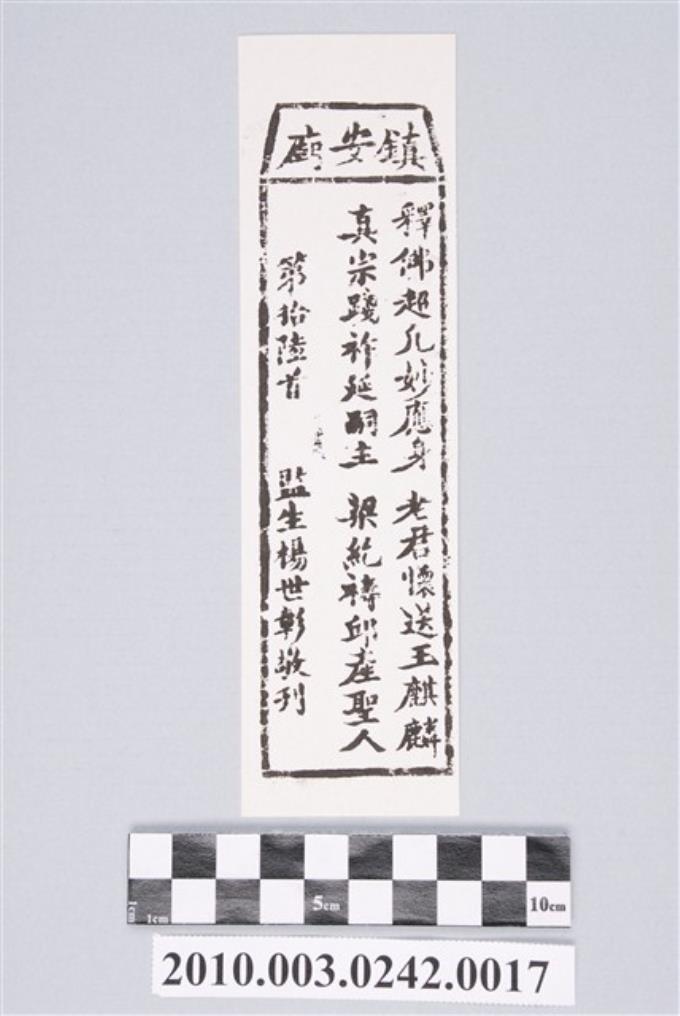 鎮安廟
釋佛超凡妙應身 老君懷送玉麒麟
真宗踐祚延嗣主 梁紇禱邱產聖人
第拾陸首 監生楊世彰敬刊
1cm 1cm 5cm 10cm
2010.003.0242.0017